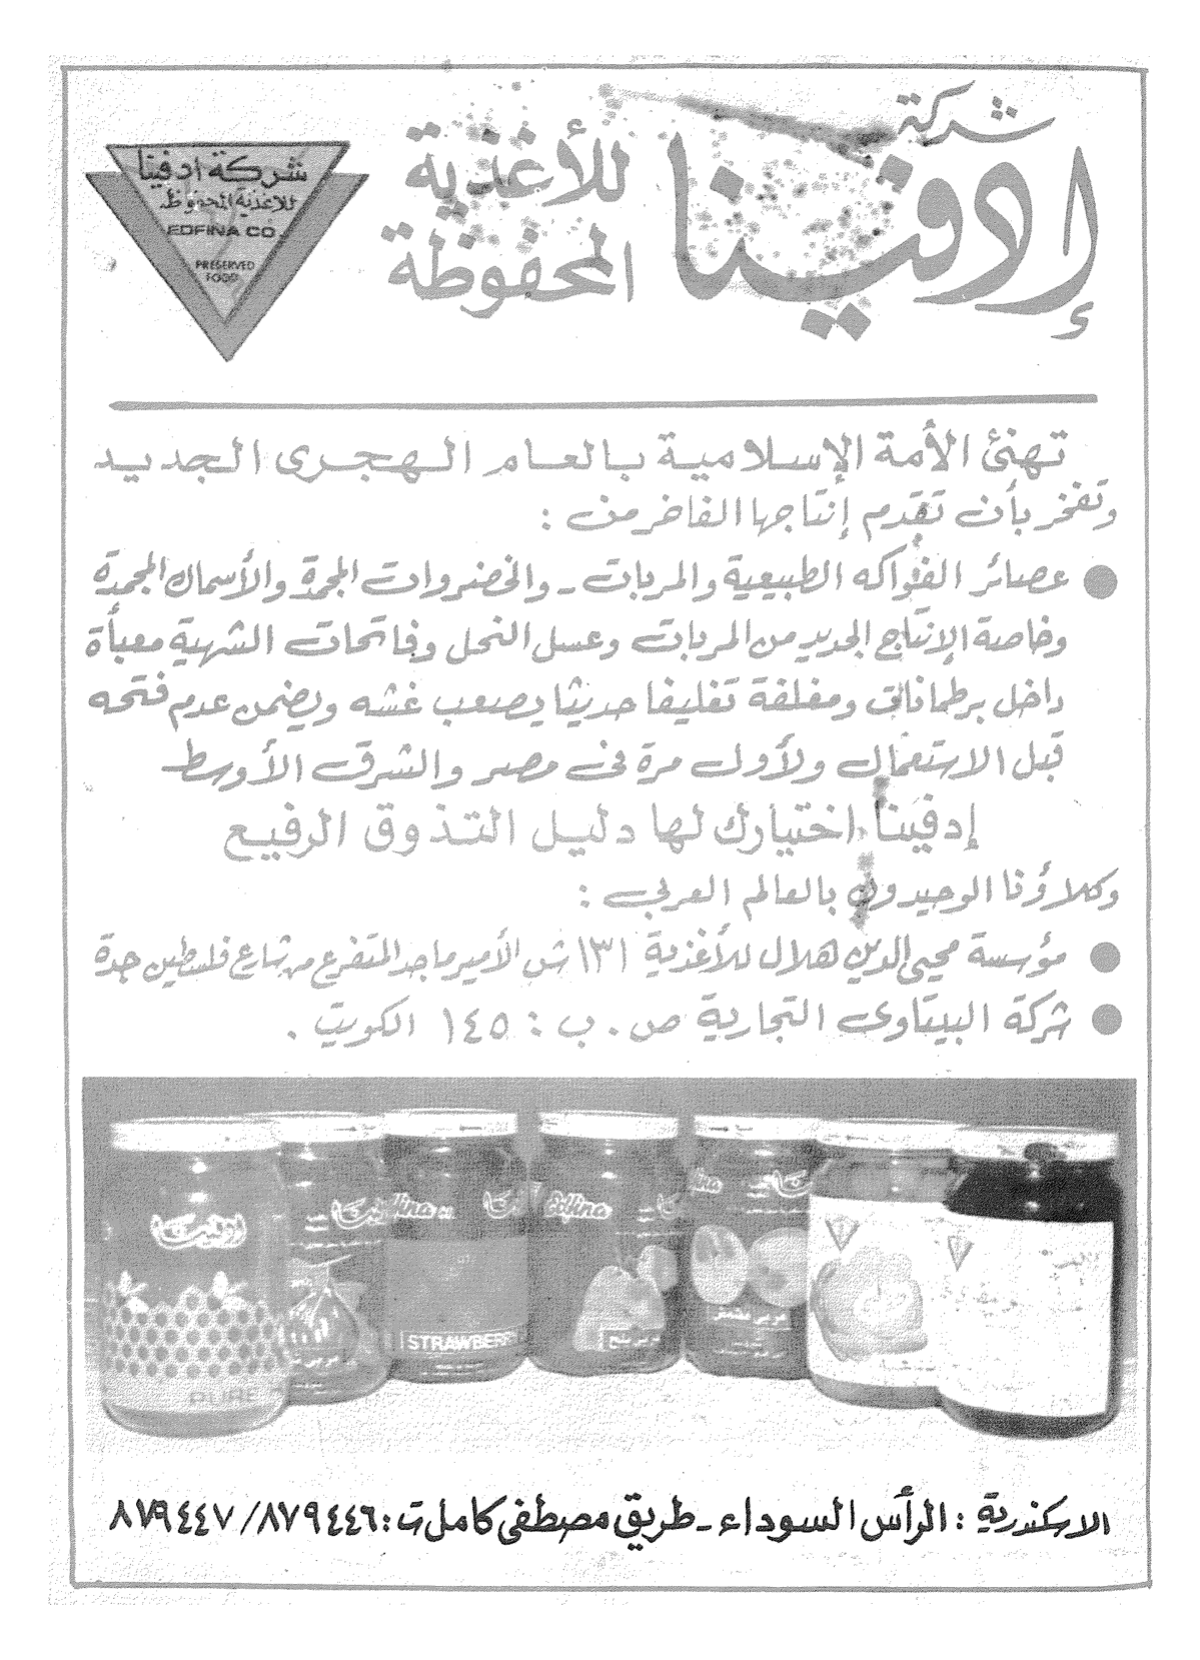 شركة
إدفينا
للأغذية
المحفوظة
شركة ادفينا
للأغذية المحفوظة
EDFINA CO.
PRESERVED
FOOD
تهنئ الأمة الإسلامية بالعام الهجرى الجديد
وتفخر بأن تقدم إنتاجها الفاخر من :
● عصائر الفواكه الطبيعية والمربات - والخضروات المجمدة والأسماك المجمدة
وخاصة الإنتاج الجديد من المربات وعسل النحل وفاتحات الشهية معبأة
داخل برطمانات ومغلفة تغليفا حديثا يصعب غشه ويضمن عدم فتحه
قبل الاستعمال ولأول مرة فى مصر والشرق الأوسط
إدفينا اختيارك لها دليل التذوق الرفيع
وكلاؤنا الوحيدون بالعالم العربى :
● مؤسسة محيى الدين هلال للأغذية ١٣١ ش الأمير ماجد المتفرع من شارع فلسطين جدة
● شركة البيتاوى التجارية ص . ب : ١٤٥ الكويت .
إدفينا
PURE
Edfina
STRAWBERR
Edfina
مربى بلح
مربى مشمش
الاسكندرية : الرأس السوداء - طريق مصطفى كامل ت : ٨٧٩٤٤٦ / ٨٧٩٤٤٧